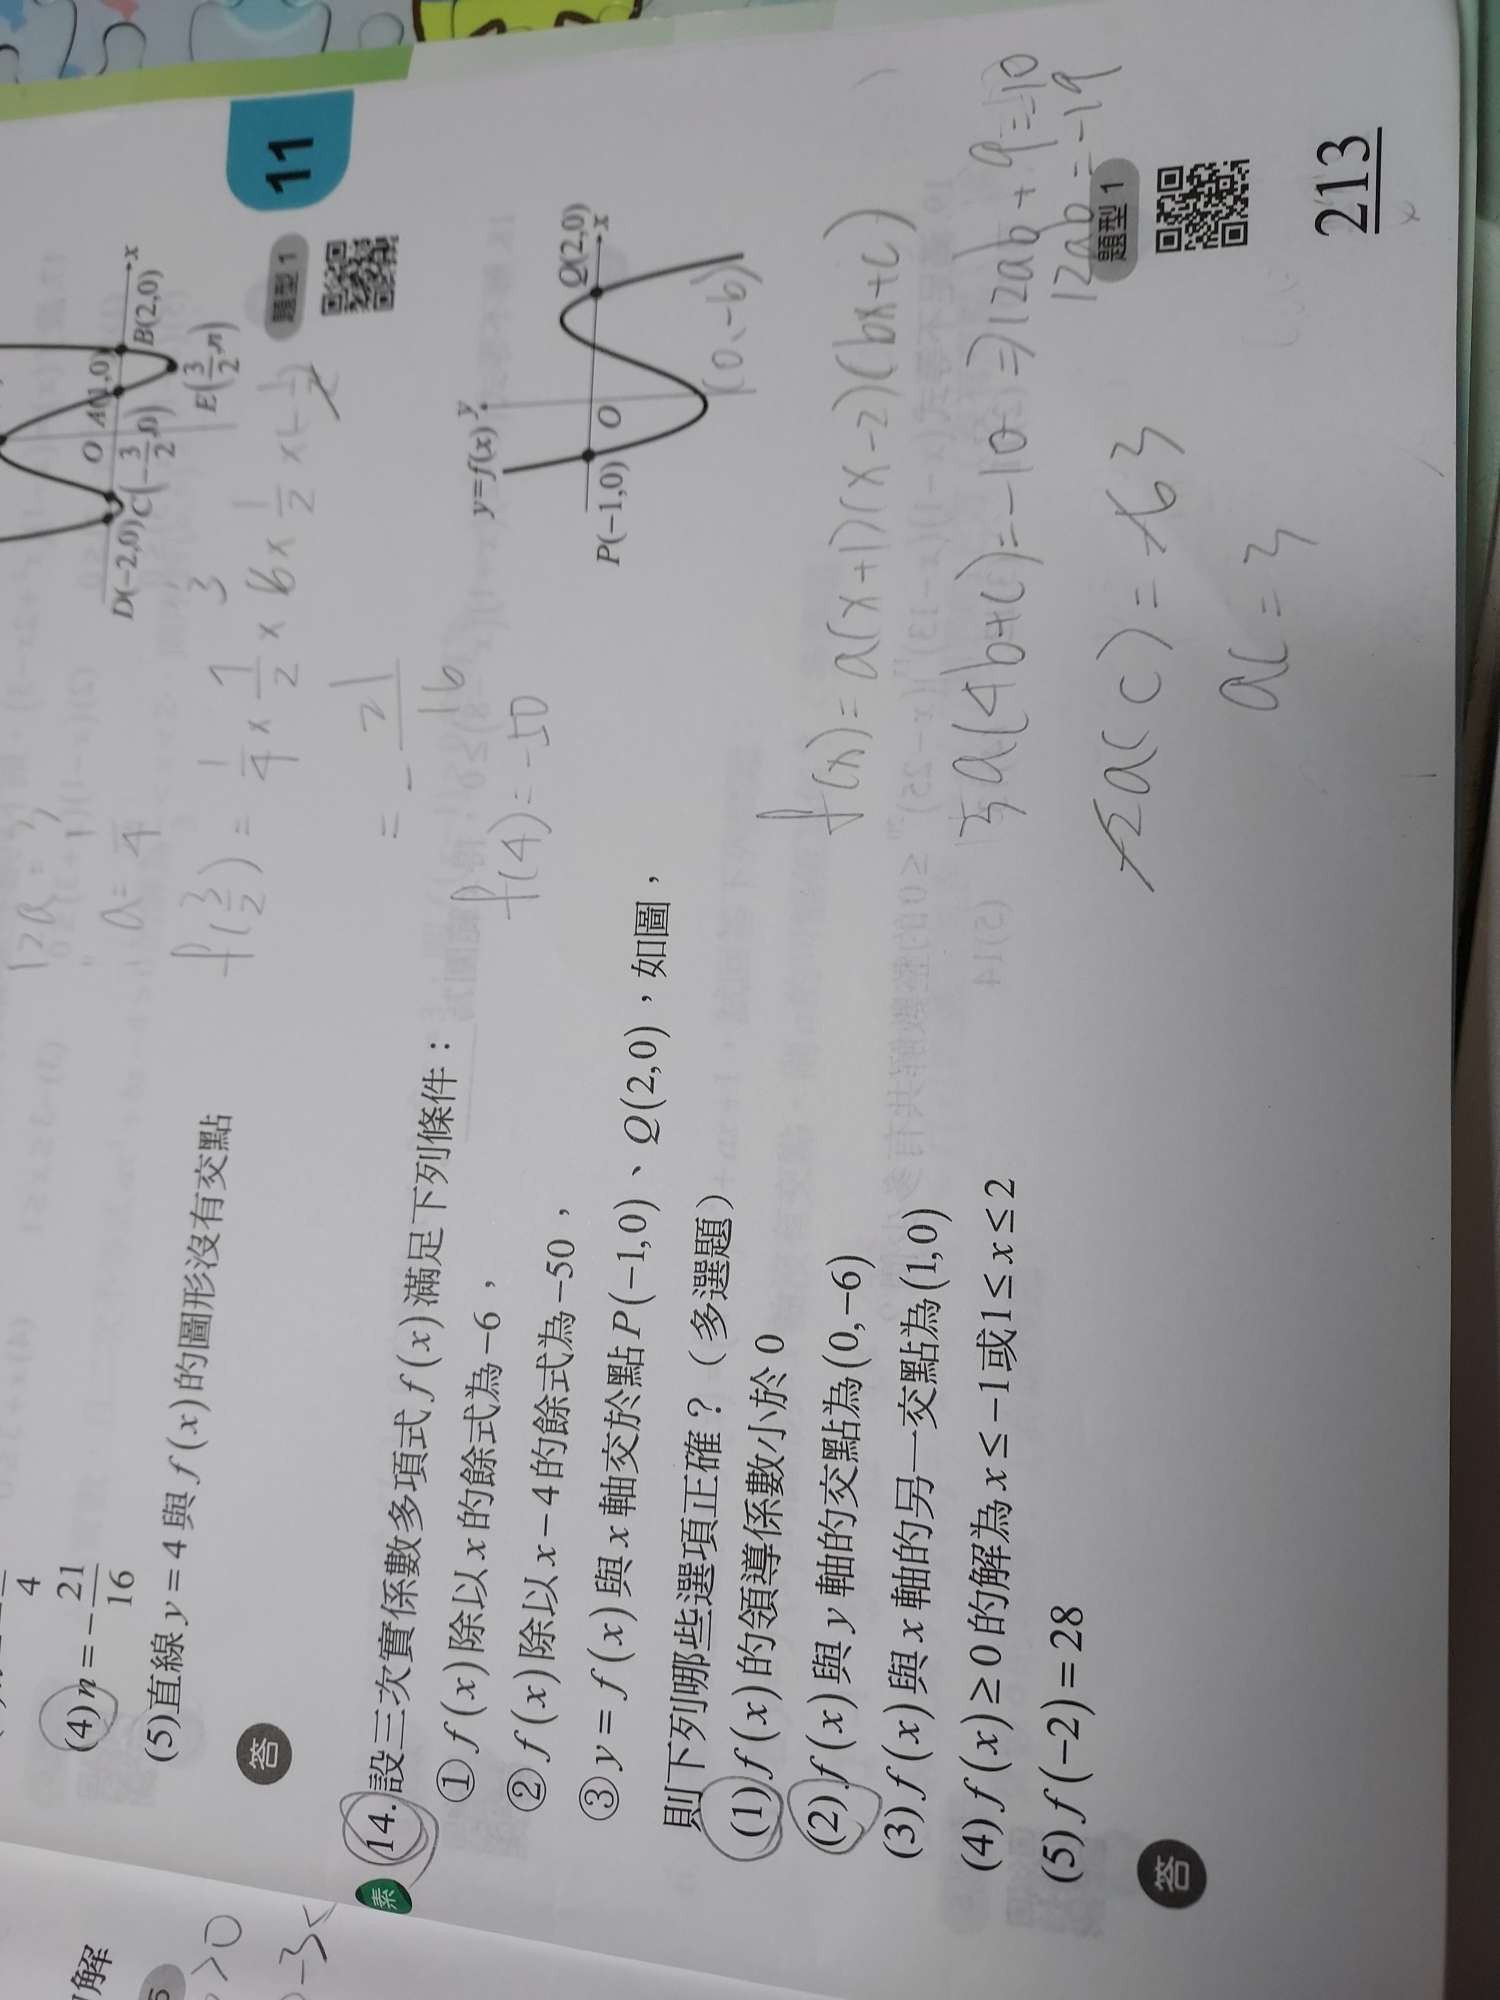 11
D(−2,0) C(−3/2,0) O A(1,0) B(2,0) x
E(3/2,n)
題型 1
4
(4) n = −21/16
(5) 直線 y = 4 與 f(x) 的圖形沒有交點
答
12a = 3
a = 1/4
f(3/2) = 1/4 ×
= −21/16
素
14. 設三次實係數多項式 f(x) 滿足下列條件：
① f(x) 除以 x 的餘式為 −6，
② f(x) 除以 x−4 的餘式為 −50，
③ y = f(x) 與 x 軸交於點 P(−1,0)、Q(2,0)，如圖，
則下列哪些選項正確？（多選題）
(1) f(x) 的領導係數小於 0
(2) f(x) 與 y 軸的交點為 (0,−6)
(3) f(x) 與 x 軸的另一交點為 (1,0)
(4) f(x) ≥ 0 的解為 x ≤ −1 或 1 ≤ x ≤ 2
(5) f(−2) = 28
答
y=f(x) y
P(−1,0) O Q(2,0) x
(0,−6)
f(4) = −50
f(x) = a(x+1)(x−2)(bx+c)
a(4b+c) = −10 ⇒ 12ab + 9 = −10
12ab = −19
−2a(c) = −6 3
ac = 3
題型 1
213
解
>0
−3<